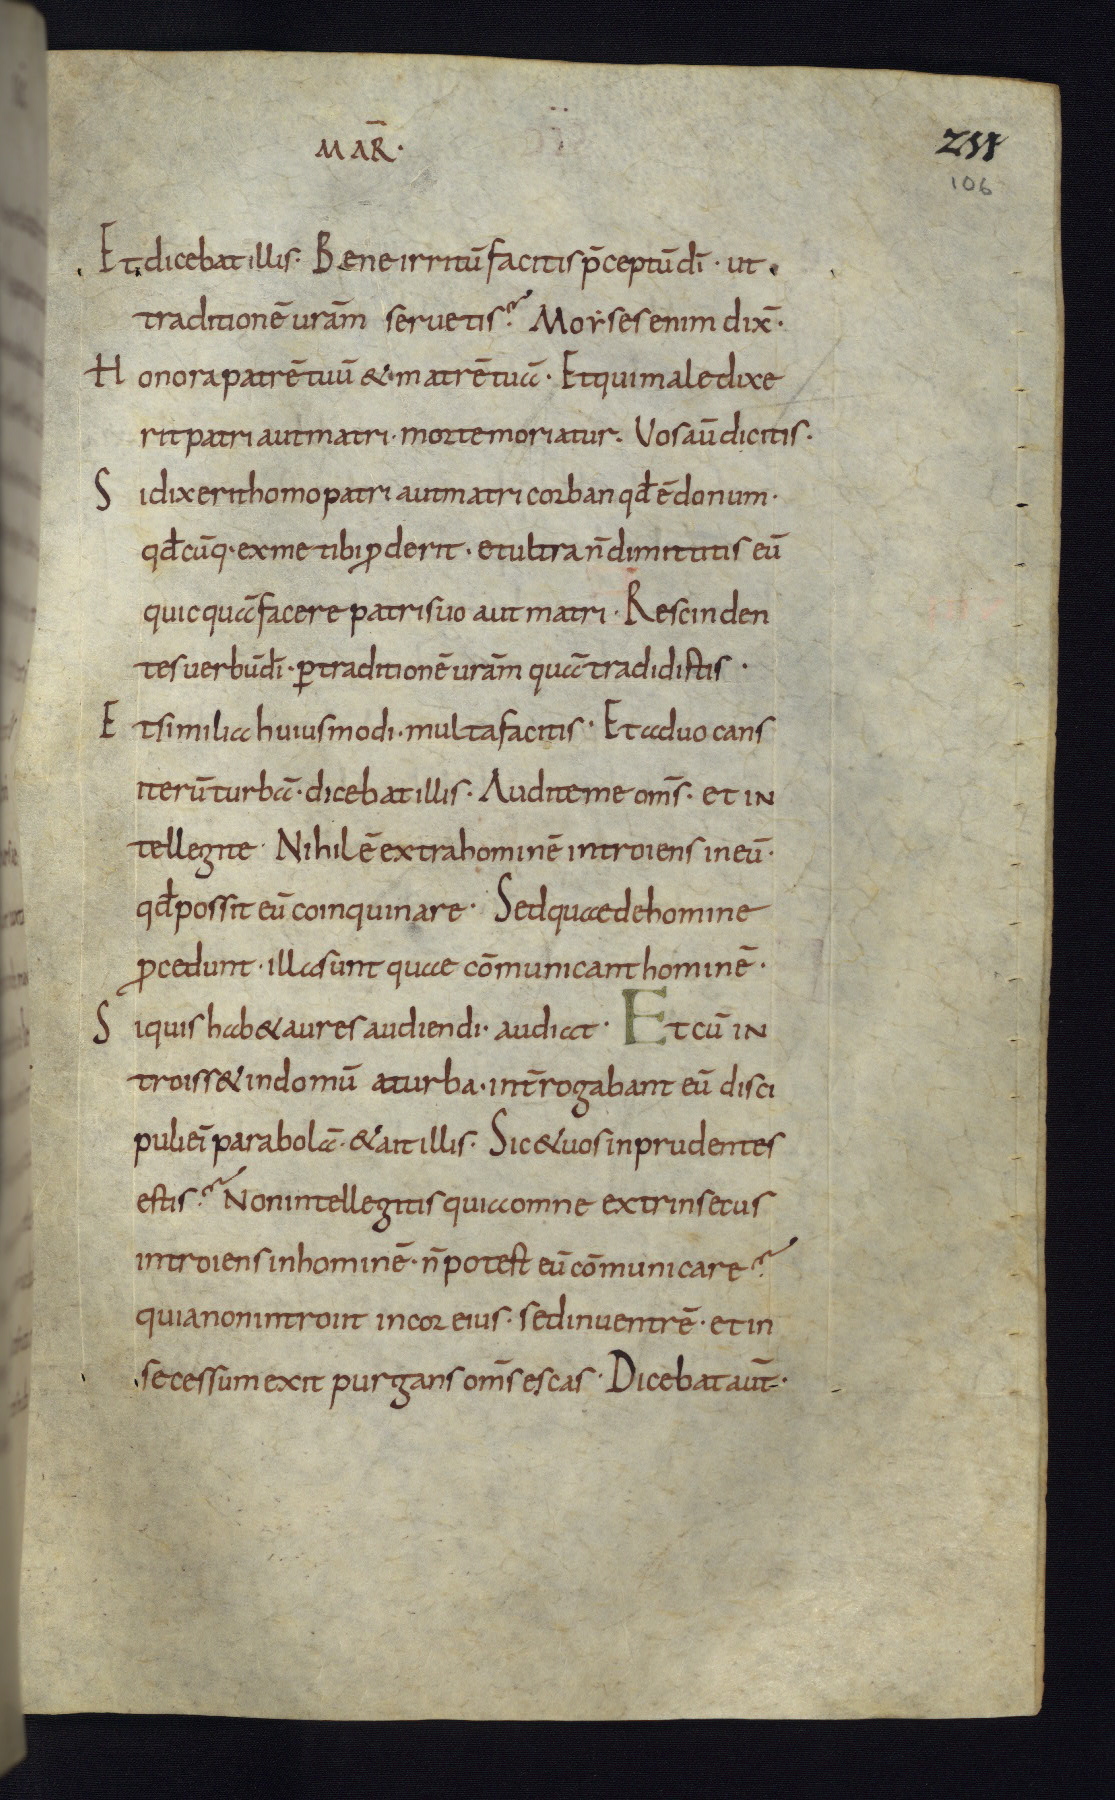 MAR̄·
211
106
Et dicebat illis· Bene irritū facitis p̄ceptū dī · ut
traditionē urām seruetis? Moẏses enim dix̄·
Honora patrē tuū & matrē tuā· Et qui maledixe
rit patri aut matri· morte moriatur· Vos aū dicitis·
Si dixerit homo patri aut matri corban qđ ē donum·
qđcūq· ex me tibi ꝓderit· et ultra n̄ dimittitis eū
quicquā facere patri suo aut matri· Rescinden
tes uerbū dī· ꝑ traditionē urām quā tradidistis·
Et similia huiusmodi· multa facitis· Et aduocans
iterū turbā· dicebat illis· Audite me om̄s· et in
tellegite· Nihil ē extra hominē introiens in eū·
qđ possit eū coinquinare· Sed quae de homine
ꝓcedunt· illa sunt quae cōmunicant hominē·
Si quis hab& aures audiendi· audiat· Et cū in
troiss& in domū a turba· int̄rogabant eū disci
puli eī parabolā· & ait illis· Sic & uos inprudentes
estis? Non intellegitis quia omne extrinsecus
introiens in hominē· n̄ potest eū cōmunicare?
quia non introit in cor eius· sed in uentrē· et in
secessum exit purgans om̄s escas· Dicebat aut̄·